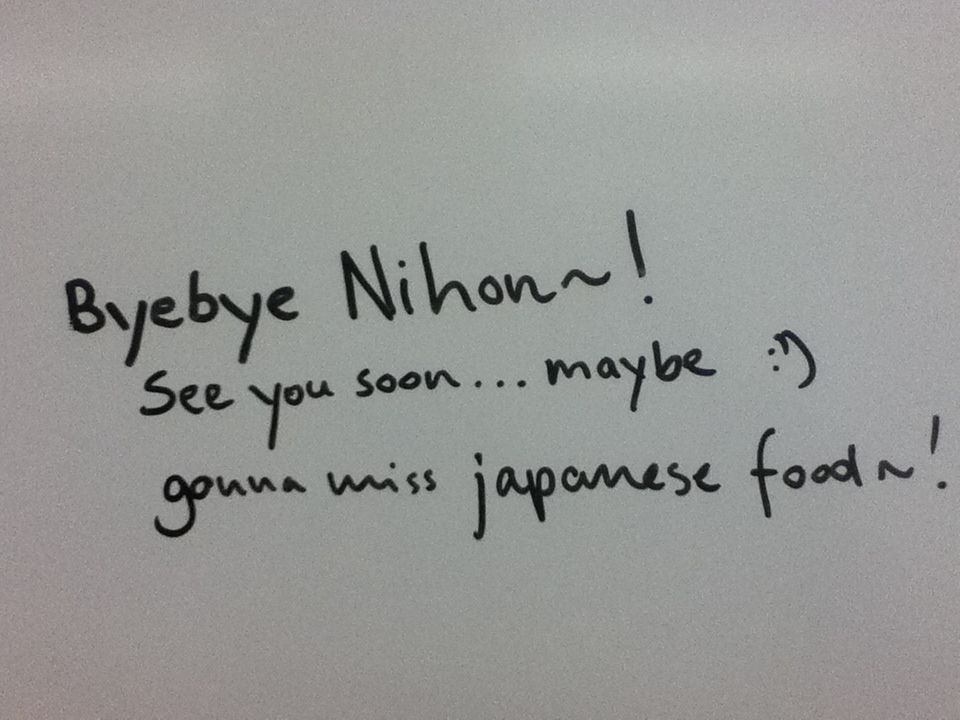 Byebye Nihon~!
See you soon... maybe :')
gonna miss japanese food~!